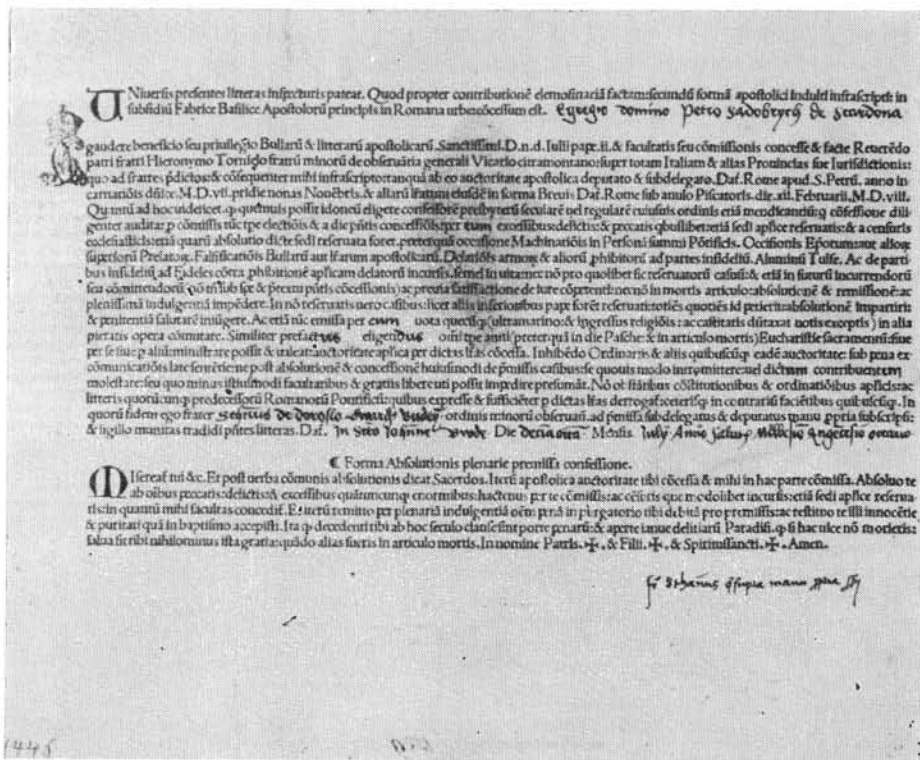 UNiuersis presentes litteras inspecturis pateat. Quod propter contributionē elemosinariā factam: secundū formā apostolici Indulti infrascripti: in
subsidiū Fabrice Basilice Apostolorū principis in Romana urbe cōcessum est. Egregio domino Petro de Scardona
gaudere beneficio seu priuilegio Bullarū & litterarū apostolicarū. Sanctissimi. D. n. d. Iulii pape. ii. & facultatis seu cōmissionis concesse & facte Reuerēdo
patri fratri Hieronymo Tornielo fratrū minorū de obseruātia generali Vicario citramontano: super totam Italiam & alias Prouincias sue Iurisdictionis:
quo ad fratres p̄dictos: & cōsequenter mihi infrascripto tanquā ab eo auctoritate apostolica deputato & subdelegato. Daʇ. Rome apud. S. Petrū. anno in
carnatiōis dn̄ice. M. D. vii. pridie nonas Nouēbris. & aliarū lʳarum eiusdē in forma Breuis Daʇ. Rome sub anulo Piscatoris. die. xii. Februarii. M. D. viii.
Quantū ad hoc uidelicet. q̨ quamuis possit idoneū eligere confessorē presbyterū secularē uel regularē cuiusuis ordinis etiā mendicantiū: q̨ cōfessione dili-
genter audita: p cōmissis tūc tpe electiōis & a die p̄ntis concessiōis: per eum excessibus delictis: & peccatis qbuslibet: etiā sedi ap̄lice reseruatis: & a censuris
ecclesiasticis: etiā quarū absolutio dicte sedi reseruata foret. preterquā occasione Machinatiōis in Personā summi Pōtificis. Occisionis Ep̄orum: aut alioꝝ
superiorū Prelatoꝝ. Falsificatiōis Bullarū aut lʳarum apostolicarū. Delatiōis armoꝝ & aliorū p̄hibitorū ad partes infideliū. Aluminū Tulfe. Ac de parti
bus infideliū ad Fideles cōtra p̄hibitionē ap̄licam delatorū incursis. semel in uita: nec nō pro quolibet sic reseruatorū casuū: & etiā in futurū incurrendorū
seu cōmittendorū (nō tn̄ sub spe & p̄textu p̄ntis cōcessionis) ac preuia satisfactione de iure cōpetenti: nec nō in mortis articulo: absolutionē & remissionē: ac
plenissimā indulgentiā impēdere. In nō reseruatis uero casibus: licet aliis inferioribus pape forēt reseruati: totiēs quotiēs id petierit: absolutionē impartiri:
& penitentiā salutarē iniūgere. Ac etiā tūc emissa per eum uota quecūq̨ (ultramarino: & ingressus religiōis: ac castitatis dūtaxat uotis exceptis) in alia
pietatis opera cōmutare. Similiter prefactus eligendus oīni tpe anni (preterquā in die Pasche: & in articulo mortis) Eucharistie sacramentū: siue
per se siue p aliū: ministrare possit & ualeat: auctoritate ap̄lica per dictas lʳas cōcessa. Inhibēdo Ordinariis & aliis quibuscūq̨ eadē auctoritate: sub pena ex
cōmunicatiōis late sentētie: ne post absolutionē & concessionē huiusmodi de p̄missis casibus: se quouis modo intromittere: uel dictum contribuentem
molestare: seu quo minus istiusmodi facultatibus & gratiis libere uti possit impedire presumāt. Nō obstātibus cōstitutionibus & ordinatiōibus ap̄licis: ac
litteris quorūcunq̨ predecessorū Romanorū Pontificū: quibus expresse & sufficiēter p dictas lʳas derrogaʇ: ceterisq̨ in contrariū faciētibus quibuscūq̨. In
quorū fidem ego frater ordinis minorū obseruaň. ad p̄missa subdelegatus & deputatus manu p̱pria subscripsi:
& sigillo munitas tradidi p̄ntes litteras. Daʇ. in Scto Die Mensis Iulij Anno octauo
¶ Forma Absolutionis plenarie premissa confessione.
MIsereaʇ tui &c. Et post uerba cōmunis absolutionis dicat Sacerdos. Iterū apostolica auctoritate tibi cōcessa & mihi in hac parte cōmissa. Absoluo te
ab oībus peccatis: delictis: & excessibus quātuncunq̨ enormibus: hactenus per te cōmissis: ac cēsuris quomodolibet incursis: etiā sedi ap̄lice reserua
tis: in quantū mihi facultas concediʇ. Et iterū remitto per plenariā indulgentiā oēm penā in purgatorio tibi debitā pro premissis: ac restituo te illi innocētie
& puritati quā in baptismo accepisti. Ita q̨ decedenti tibi ab hoc seculo clause sint porte penarū: & aperte ianue delitiarū Paradisi. q̨ si hac uice nō morieris:
salua sit tibi nihilominus ista gratia: quādo alias fueris in articulo mortis. In nomine Patris. ✠. & Filii. ✠. & Spiritussancti. ✠. Amen.
supra manu
1446